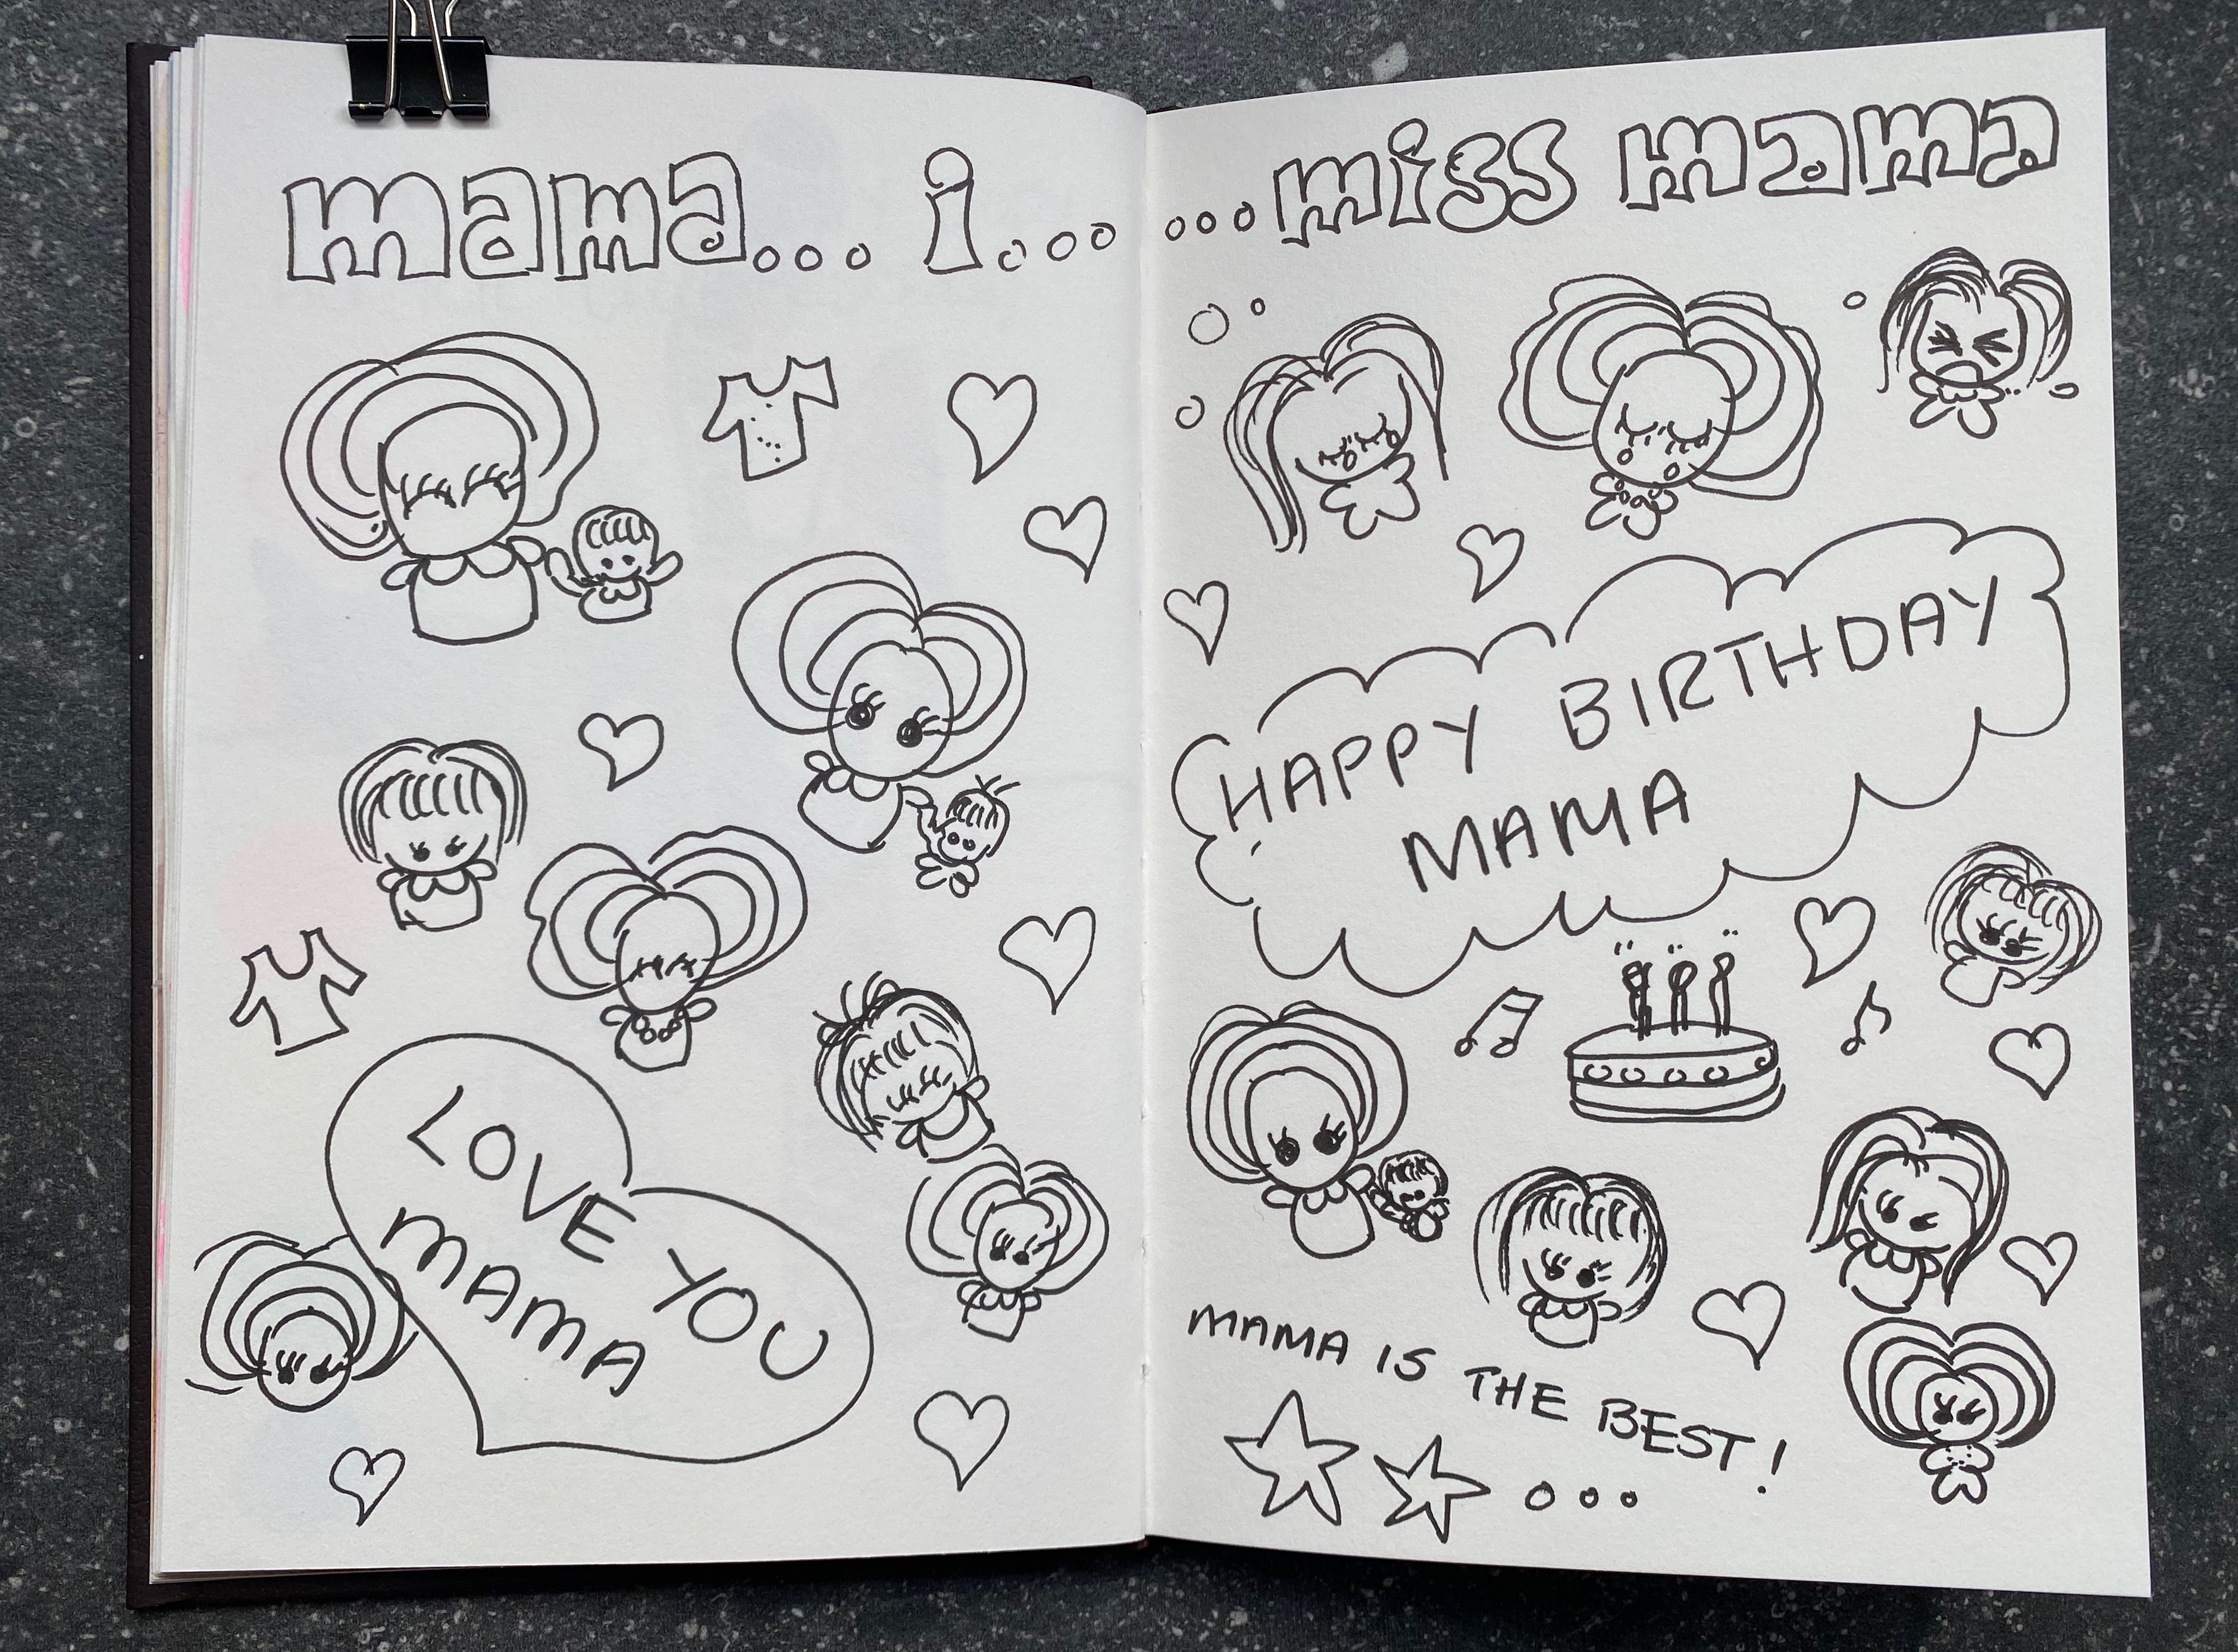 mama... i...
...miss mama
LOVE YOU
MAMA
HAPPY BIRTHDAY
MAMA
MAMA IS THE BEST!
...